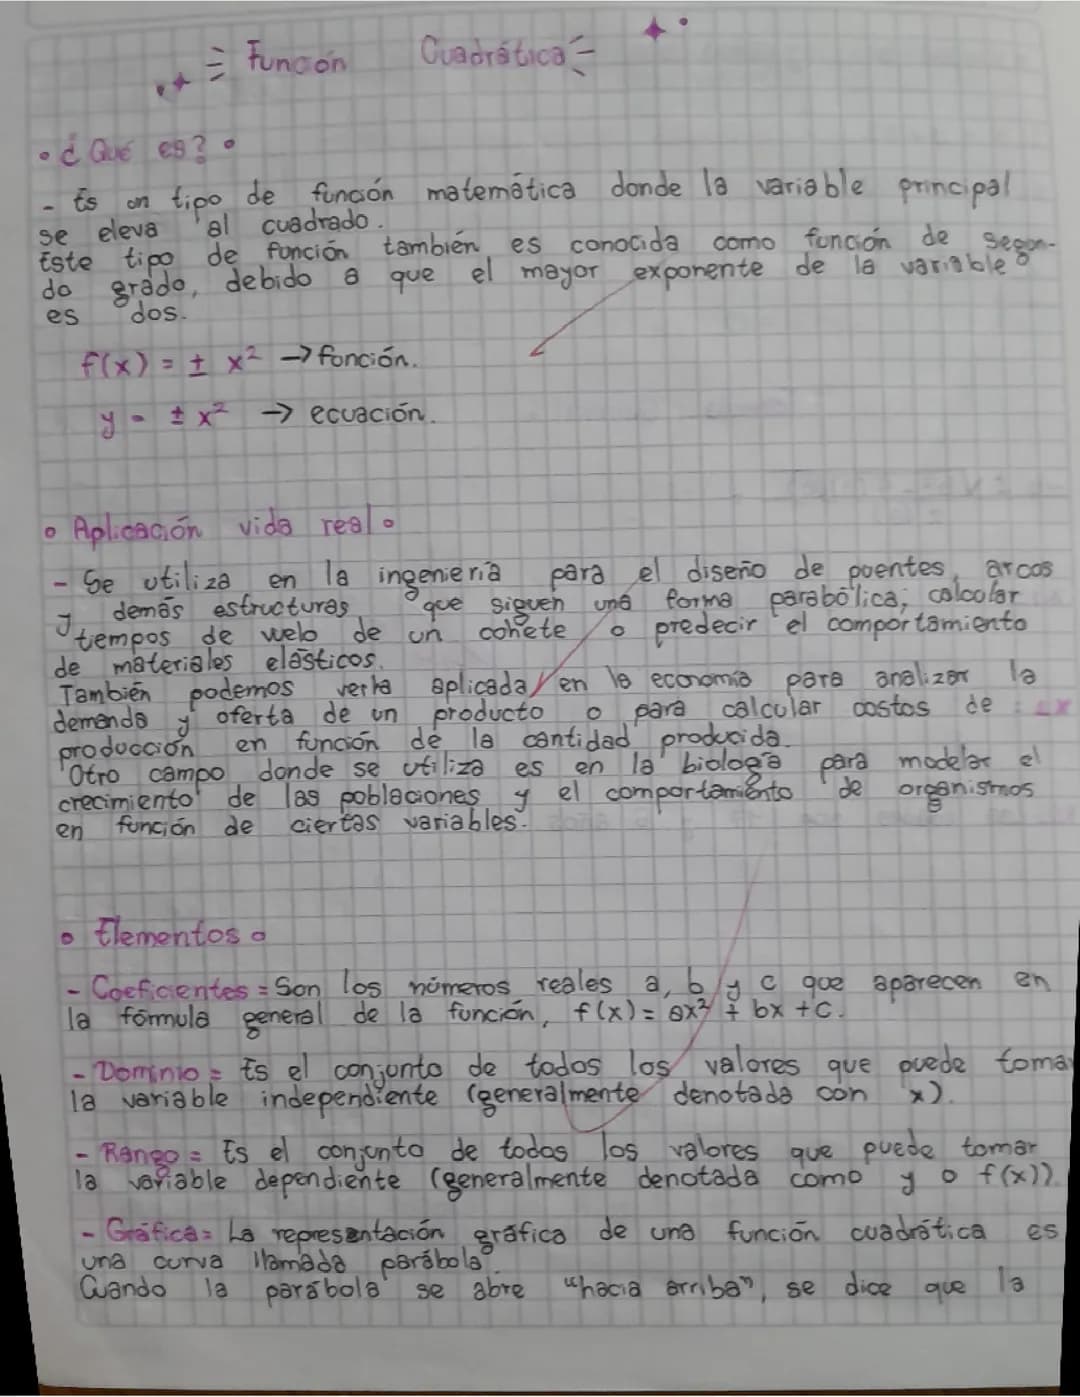 Función Cuadrática
¿Qué es?
- Es un tipo de función matemática donde la variable principal
se eleva al cuadrado.
Este tipo de función también es conocida como función de segun-
do grado, debido a que el mayor exponente de la variable
es dos.
f(x) = ± x² → función.
y = ± x² → ecuación.
Aplicación vida real
- Se utiliza en la ingeniería para el diseño de puentes, arcos
y demás estructuras que siguen una forma parabólica; calcular
tiempos de welo de un cohete o predecir el comportamiento
de materiales elásticos.
También podemos verla aplicada en la economía para analizar la
demanda y oferta de un producto o para calcular costos de
producción en función de la cantidad producida.
Otro campo donde se utiliza es en la biología para modelar el
crecimiento de las poblaciones y el comportamiento de organismos
en función de ciertas variables.
Elementos
- Coeficientes = Son los números reales a, b y c que aparecen en
la fórmula general de la función, f(x) = ax² + bx + c.
- Dominio = Es el conjunto de todos los valores que puede toma
la variable independiente (generalmente denotada con x).
- Rango = Es el conjunto de todos los valores que puede tomar
la variable dependiente (generalmente denotada como y o f(x)).
- Gráfica = La representación gráfica de una función cuadrática es
una curva llamada parábola.
Cuando la parábola se abre "hacia arriba", se dice que la